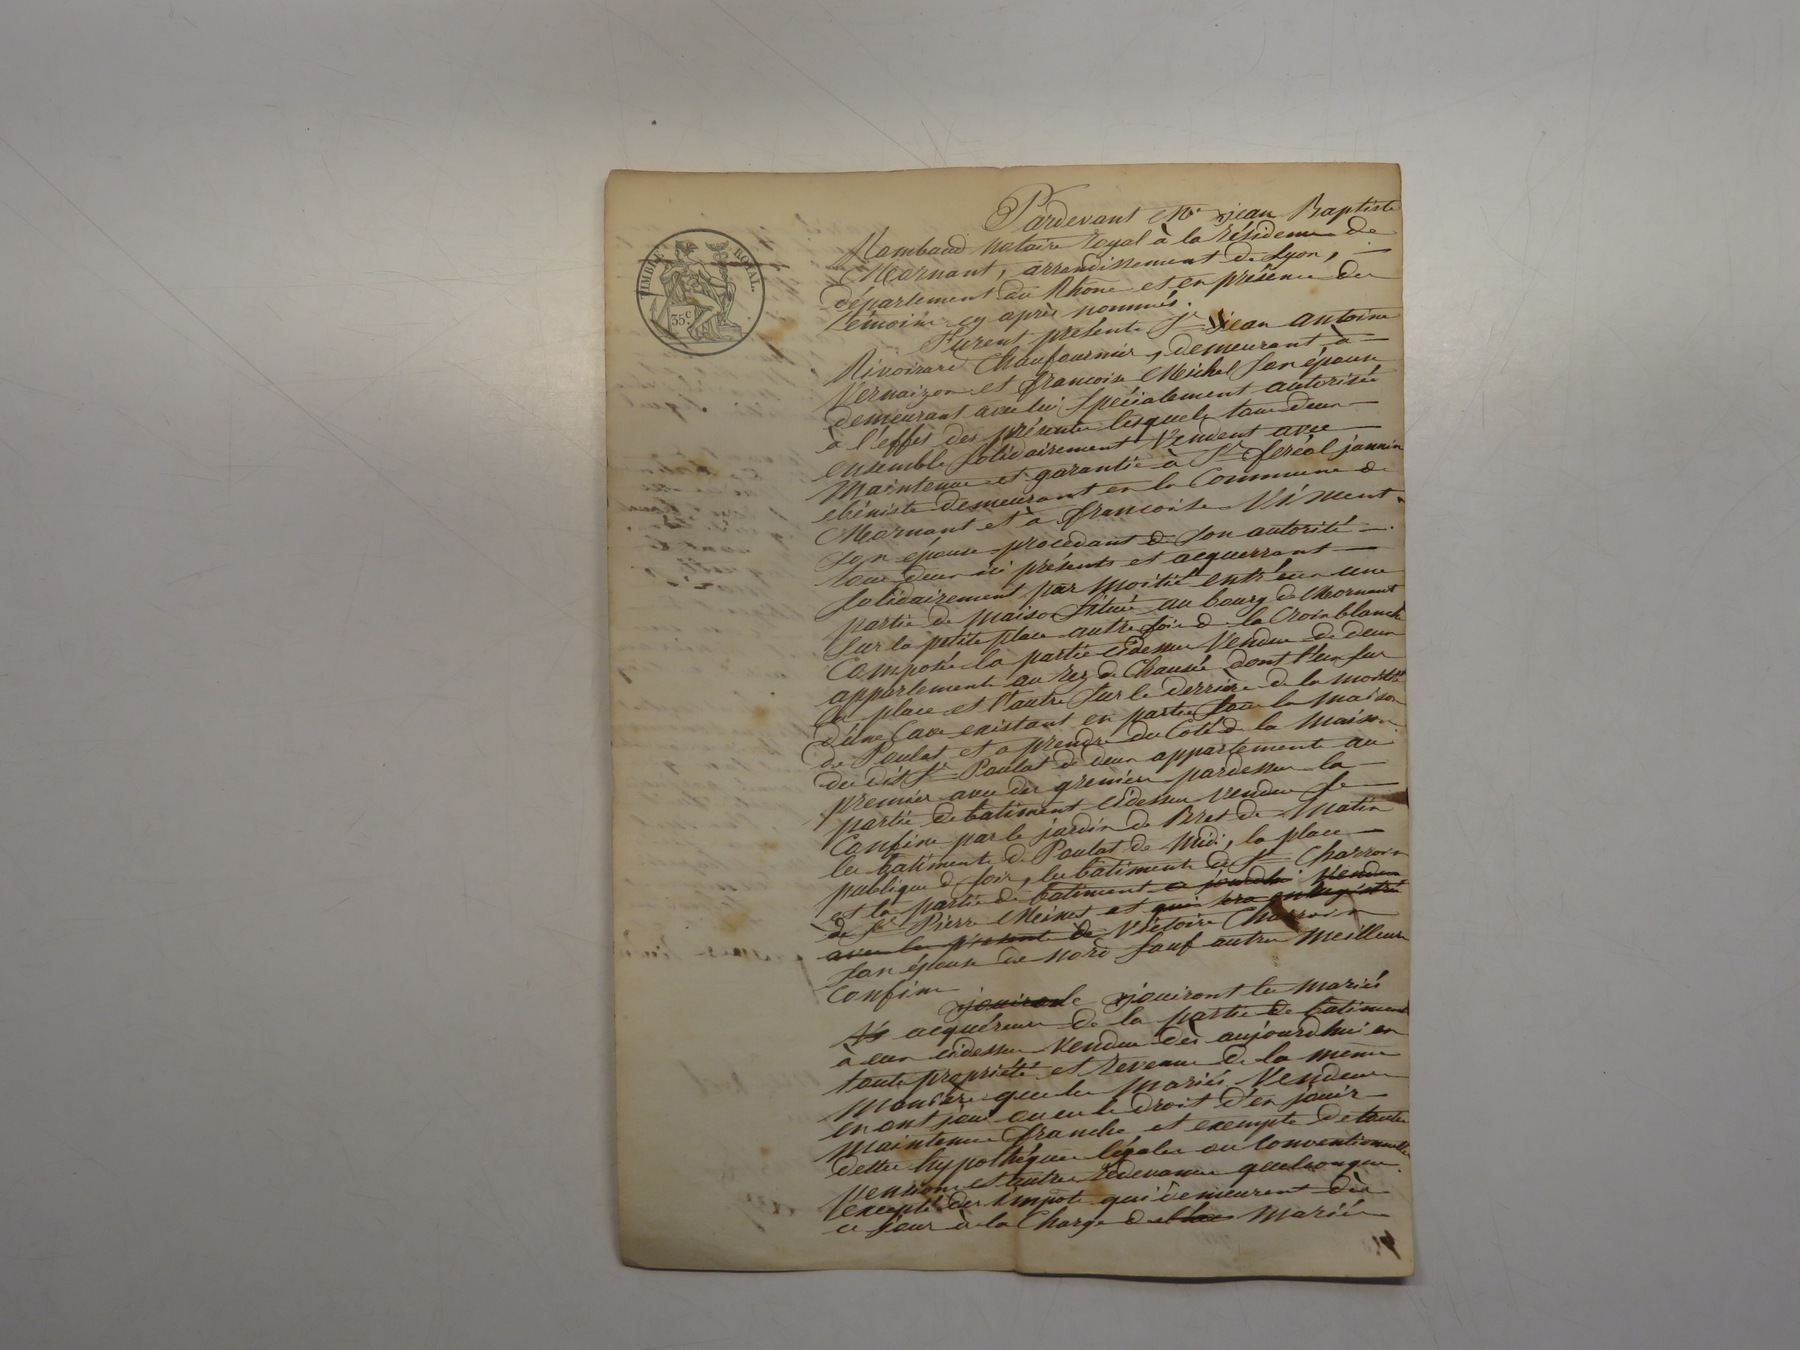 TIMBRE ROYAL.
35 c
Pardevant Me jean Baptiste
Rambaud notaire royal à la résidence de
Mornant, arrondissement de Lyon,
département du Rhône et en présence des
témoins cy après nommés.
Furent présents Sr jean antoine
Rivoirard Chaufournier, demeurant à
Vernaizon et françoise Michel son épouse
demeurant avec lui spécialement autorisée
à l'effet des présentes lesquels tous deux
ensemble solidairement vendent avec
maintenue et garantie à Sr feréol jannin
ebéniste demeurant en la Commune de
Mornant et à françoise Viment
son épouse procédant de son autorité
tous deux ici présents et acquerrant
solidairement par moitié entr'eux une
partie de maison située au bourg de Mornant
sur la petite place autre fois de la Croix blanche
Composée la partie cidessus vendue de deux
appartements au rez de Chaussée dont l'un sur
la place et l'autre sur le derrière de la moitié
d'une Cave existant en partie sous la maison
de Poulat et a prendre du Coté de la maison
du dit Sr Poulat de deux appartements au
premier avec des greniers pardessus la
partie de batiment cidessus vendue se
Confine par le jardin de Bret de matin
les batiments de Poulat de midi, la place
publique de soir, les bâtiments de Sr Charroin
et la partie de batiment ce jourdhui vendue
de Sr Pierre Meines et qui sera enregistré
avec les présentes de Victoire Charroin
son épouse de nord sauf autres meilleurs
Confins
jouiront les mariés
acquéreurs de la partie de batiment
à eux cidessus vendue dès aujourdhui en
toute propriété et revenus de la même
manière que les mariés vendeurs
en ont joui ou eu le droit d'en jouir
maintenue franche et exempte de toutes
dettes hypothèques légales ou conventionnelles
pensions et autres redevances quelconques
excepté des impots qui demeurent dès
ce jour à la Charge des mariés